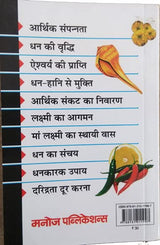 आर्थिक संपन्नता
धन की वृद्धि
ऐश्वर्य की प्राप्ति
धन-हानि से मुक्ति
आर्थिक संकट का निवारण
लक्ष्मी का आगमन
मां लक्ष्मी का स्थायी वास
धन का संचय
धनकारक उपाय
दरिद्रता दूर करना
मनोज पब्लिकेशन्स